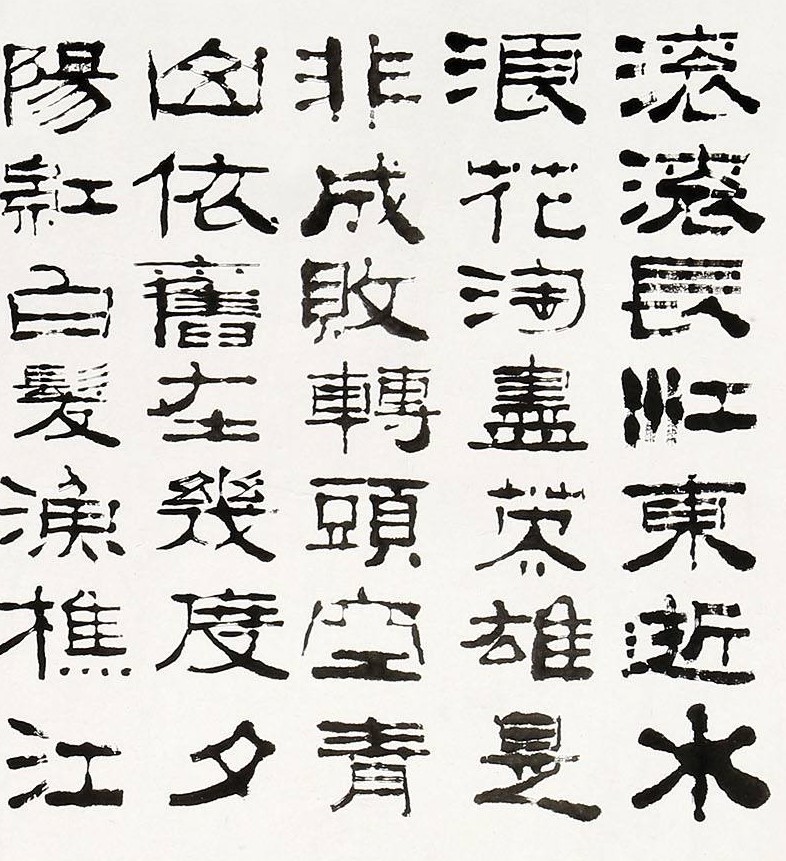 滚滚長江東逝水
浪花淘盡英雄是
非成敗轉頭空青
山依舊在幾度夕
陽紅白髮漁樵江